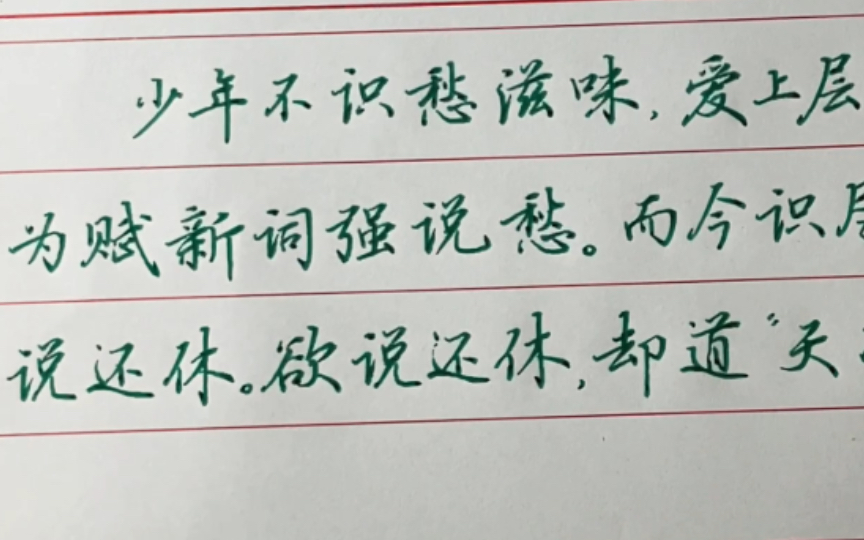 少年不识愁滋味,爱上层
为赋新词强说愁。而今识
说还休。欲说还休,却道“天